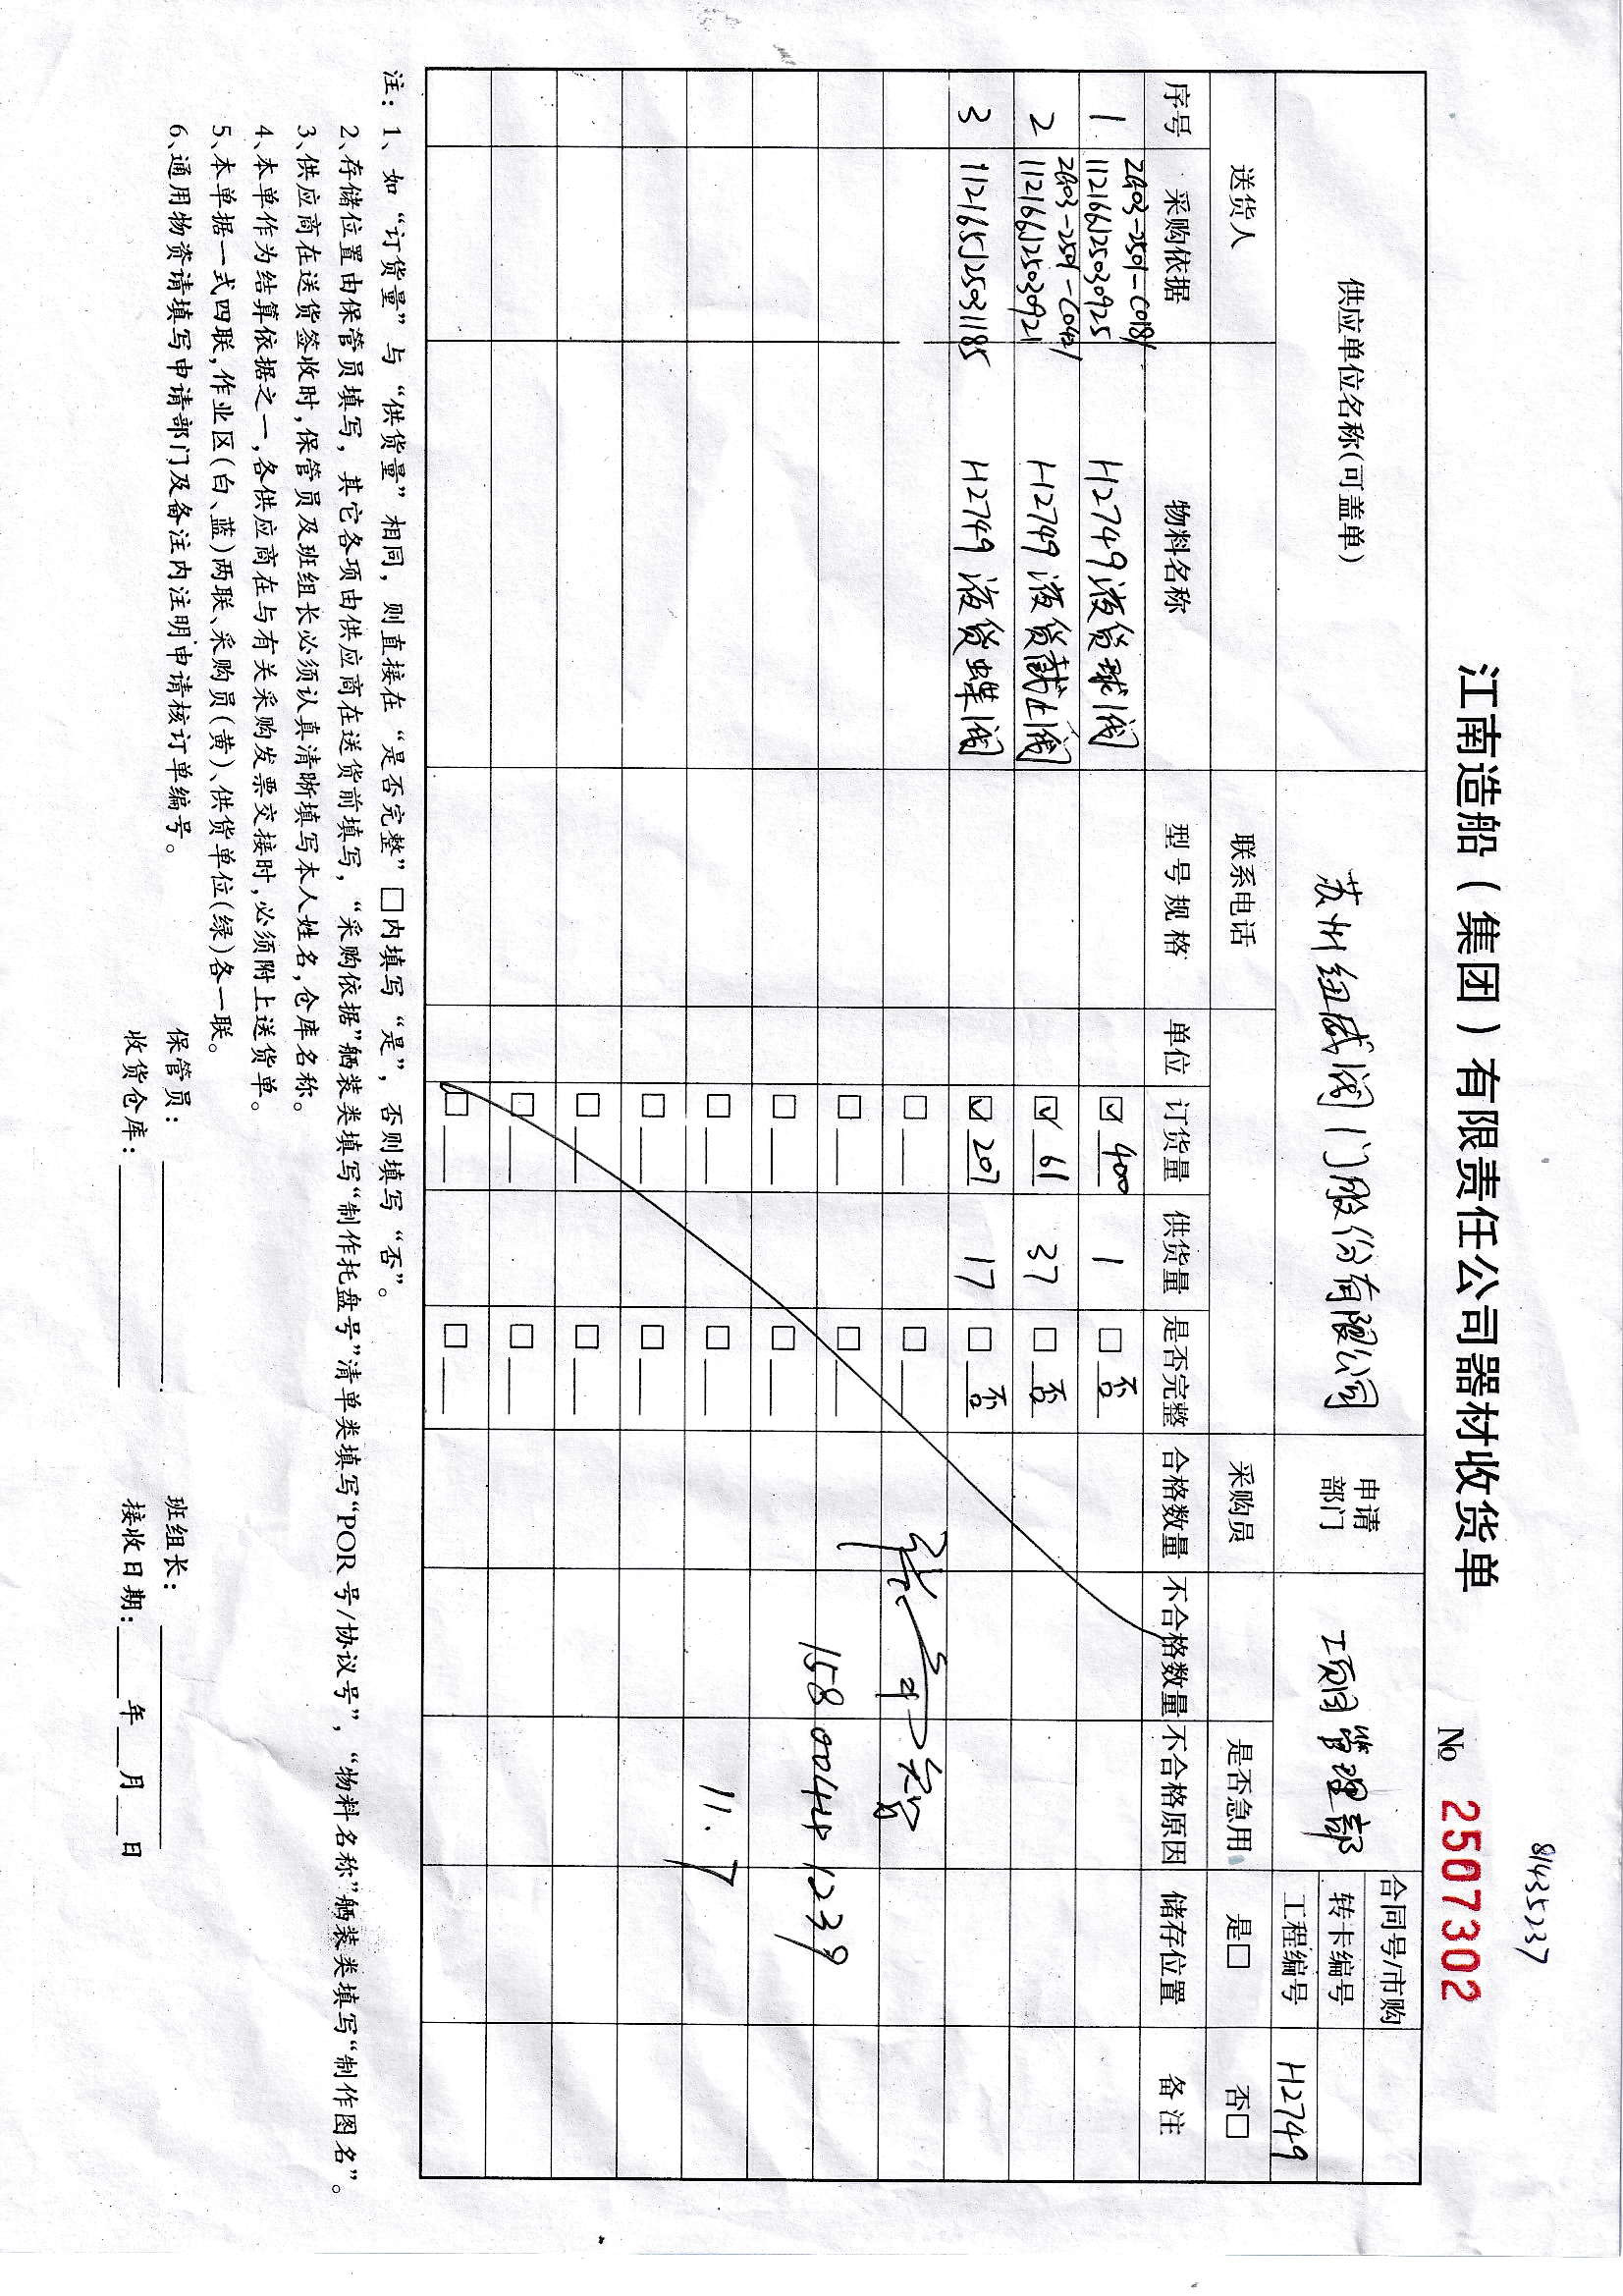 81435237
江南造船（集团）有限责任公司器材收货单 № 2507302
供应单位名称(可盖单) 苏州纽威阀门股份有限公司 申请部门 项目管理部 合同号/市购
转卡编号
工程编号 H2749
送货人 联系电话 采购员 是否急用 是□ 否□
序号 采购依据 物料名称 型号规格 单位 订货量 供货量 是否完整 合格数量 不合格数量 不合格原因 储存位置 备注
2G03-2501-C018/
1 112166J25030925 H2749液货球阀 ☑400 1 □否
2G03-2501-C042/
2 112166J25030921 H2749液货截止阀 ☑61 37 □否
3 112165J25031185 H2749液货蝶阀 ☑207 17 □否
158 0044 1239
11.7
注：1、如“订货量”与“供货量”相同，则直接在“是否完整”□内填写“是”，否则填写“否”。
2、存储位置由保管员填写，其它各项由供应商在送货前填写，“采购依据”舾装类填写“制作托盘号”清单类填写“POR号/协议号”，“物料名称”舾装类填写“制作图名”。
3、供应商在送货签收时,保管员及班组长必须认真清晰填写本人姓名,仓库名称。
4、本单作为结算依据之一,各供应商在与有关采购发票交接时,必须附上送货单。
5、本单据一式四联,作业区(白、蓝)两联、采购员(黄)、供货单位(绿)各一联。
6、通用物资请填写申请部门及备注内注明申请核订单编号。
保管员： 班组长：
收货仓库： 接收日期： 年 月 日